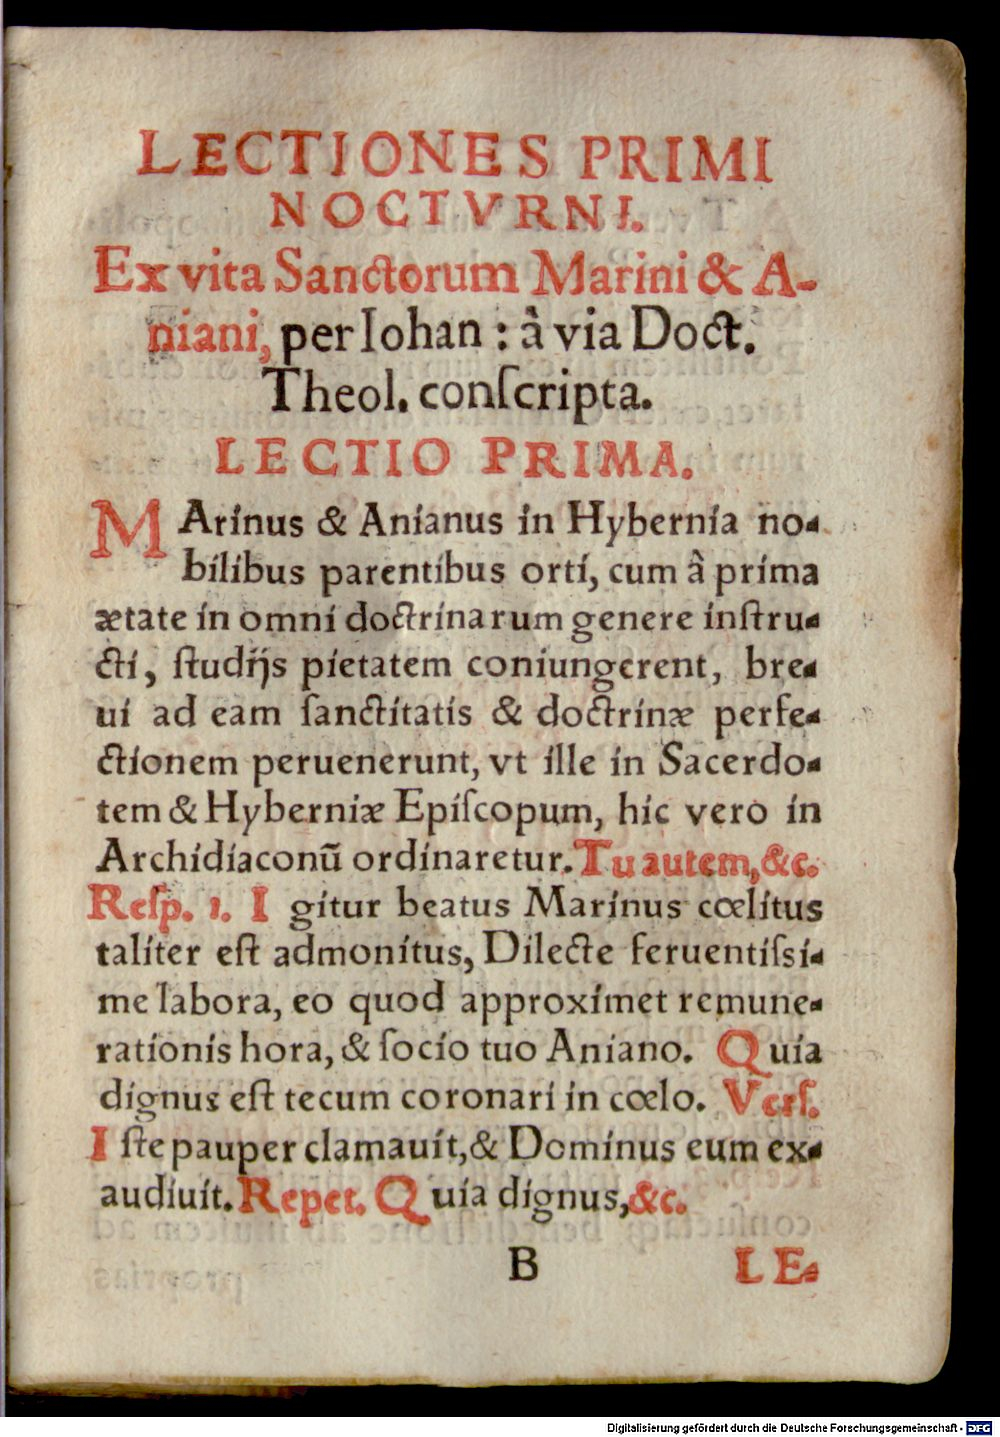 LECTIONES PRIMI
NOCTVRNI.
Ex vita Sanctorum Marini & A-
niani, per Iohan : à via Doct.
Theol. conſcripta.
LECTIO PRIMA.
MArinus & Anianus in Hybernia no-
bilibus parentibus orti, cum à prima
ætate in omni doctrinarum genere inſtru-
cti, ſtudijs pietatem coniungerent, bre-
ui ad eam ſanctitatis & doctrinæ perfe-
ctionem peruenerunt, vt ille in Sacerdo-
tem & Hyberniæ Epiſcopum, hic vero in
Archidiaconū ordinaretur. Tu autem, &c.
Reſp. 1. Igitur beatus Marinus cœlitus
taliter eſt admonitus, Dilecte feruentiſsi-
me labora, eo quod approximet remune-
rationis hora, & ſocio tuo Aniano. Quia
dignus eſt tecum coronari in cœlo. Verſ.
Iſte pauper clamauit, & Dominus eum ex-
audiuit. Repet. Quia dignus, &c.
B LE-
Digitalisierung gefördert durch die Deutsche Forschungsgemeinschaft - DFG